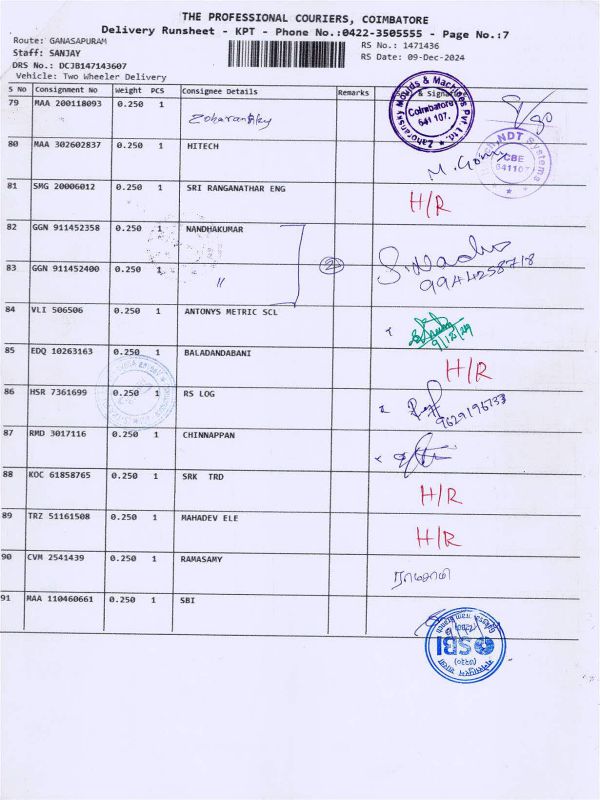 THE PROFESSIONAL COURIERS, COIMBATORE
Delivery Runsheet - KPT - Phone No.:0422-3505555 - Page No.:7
Route: GANASAPURAM
RS No.: 1471436
Staff: SANJAY
RS Date: 09-Dec-2024
DRS No.: DCJB147143607
Vehicle: Two Wheeler Delivery
S No Consignment No Weight PCS Consignee Details Remarks & Signature
79 MAA 200118093 0.250 1 Zoharansky
Zahoransky Moulds & Machines Pvt Ltd.
Coimbatore
641 107.
80 MAA 302602837 0.250 1 HITECH
NDT Systems
CBE
641107
81 SMG 20006012 0.250 1 SRI RANGANATHAR ENG H/R
82 GGN 911452358 0.250 1 NANDHAKUMAR
83 GGN 911452400 0.250 1 " 2
9944258718
84 VLI 506506 0.250 1 ANTONYS METRIC SCL
9/12/24
85 EDQ 10263163 0.250 1 BALADANDABANI H/R
86 HSR 7361699 0.250 1 RS LOG
9629196733
87 RMD 3017116 0.250 1 CHINNAPPAN
88 KOC 61858765 0.250 1 SRK TRD H/R
89 TRZ 51161508 0.250 1 MAHADEV ELE H/R
90 CVM 2541439 0.250 1 RAMASAMY ராமசாமி
91 MAA 110460661 0.250 1 SBI
SBI